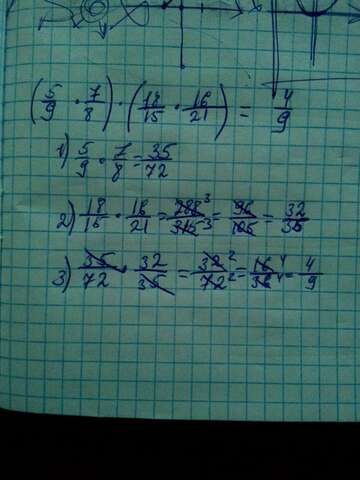 (5/9 · 7/8) · (18/15 · 16/21) = 4/9
1) 5/9 · 7/8 = 35/72
2) 18/15 · 16/21 = 288³/315³ = 96/105 = 32/35
3) 35/72 · 32/35 = 32²/72² = 16⁴/36⁴ = 4/9